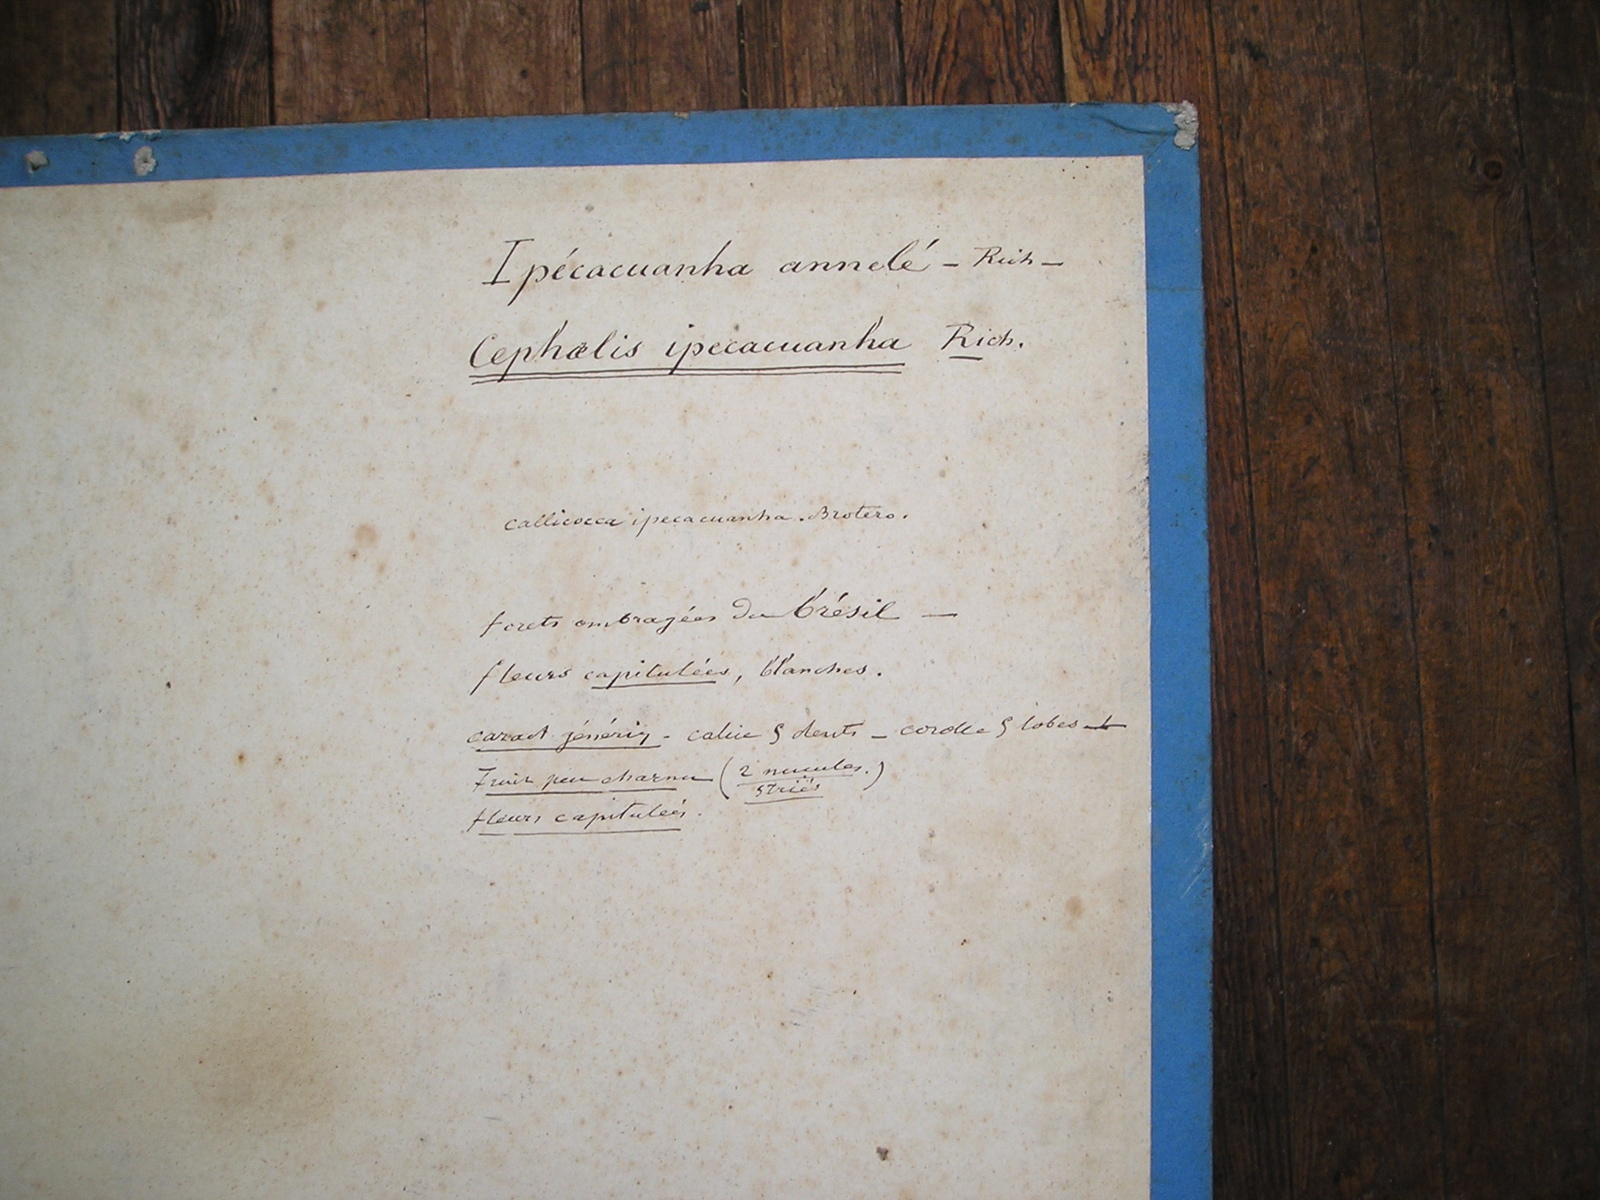 Ipécacuanha annelé - Rich -
Cephælis ipecacuanha Rich.
callicocca ipecacuanha. Brotero.
forets ombragées du brésil -
fleurs capitulées, blanches.
caract jénériq - calice 5 dents - corolle 5 lobes -
Fruit peu charnu (2 nucules.)
striés
fleurs capituleés.